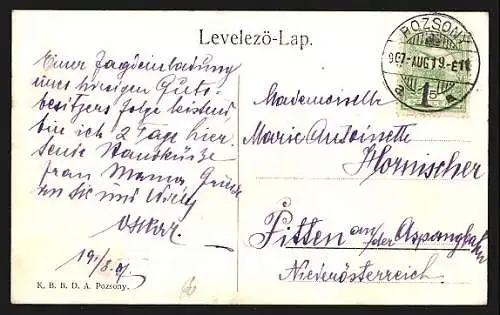 Levelezö-Lap.
POZSONY
907-AUG 19.-E
Einer Jagdeinladung
eines hiesigen Guts-
besitzers folge leistend
bin ich 2 Tage hier
sende Handküsse
Frau Mama Grüße
an Sie und Willy
Oskar
19./8. 07.
Mademoiselle
Marie Antoinette
Hornischer
Pitten an der Aspangbahn
Niederösterreich.
K. B. B. D. A. Pozsony.